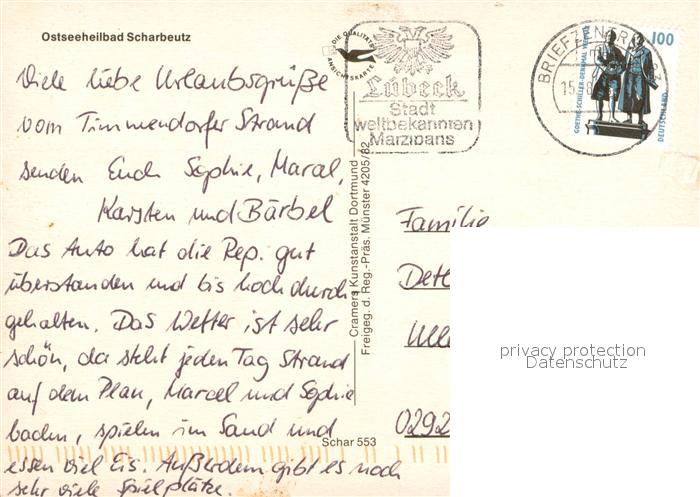 Ostseeheilbad Scharbeutz
Viele liebe Urlaubsgrüße
vom Timmendorfer Strand
senden Euch Sophie, Marcel,
Karsten und Bärbel
Das Auto hat die Rep. gut
überstanden und bis hoch durch
gehalten. Das Wetter ist sehr
schön, da steht jeden Tag Strand
auf dem Plan, Marcel und Sophie
baden, spielen im Sand und
essen viel Eis. Außerdem gibt es noch
sehr viele Spielplätze.
Schar 553
Cramers Kunstanstalt Dortmund
Freigeg. d. Reg.-Präs. Münster 4205/82
DIE QUALITÄTS
ANSICHTSKARTE
Lübeck
Stadt
weltbekannten
Marzipans
BRIEFZENTRUM
GOETHE-SCHILLER-DENKMAL WEIMAR
100
DEUTSCHLAND
Familie
0292
privacy protection
Datenschutz